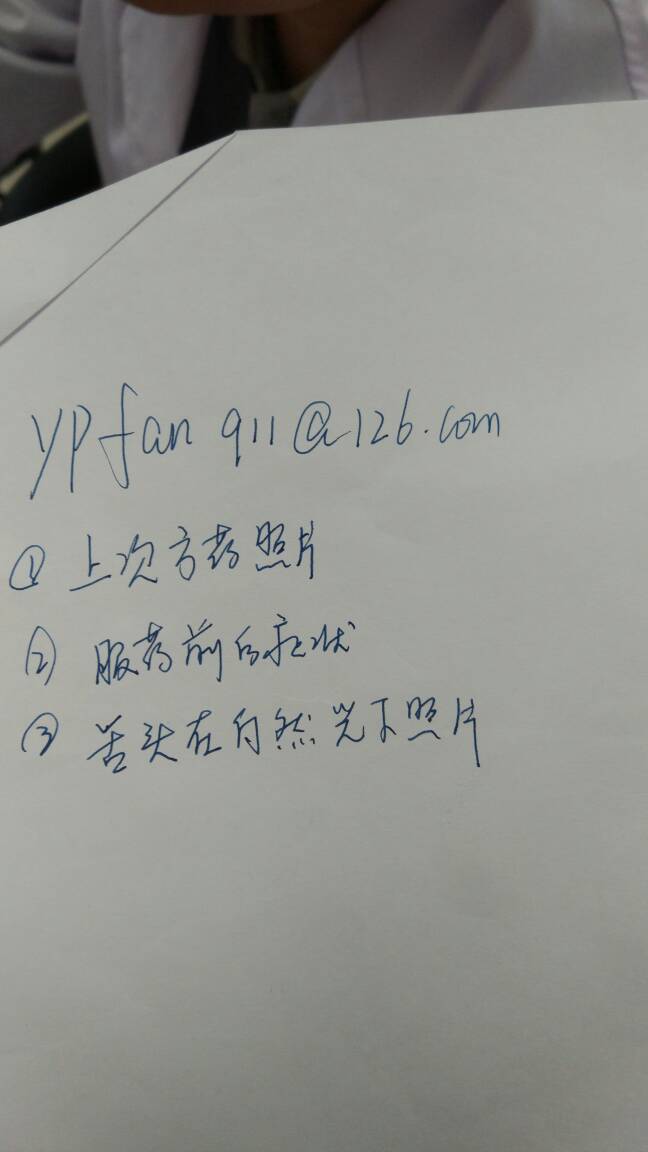 ypfan911@126.com
① 上次方药照片
② 服药前后症状
③ 舌头在自然光下照片